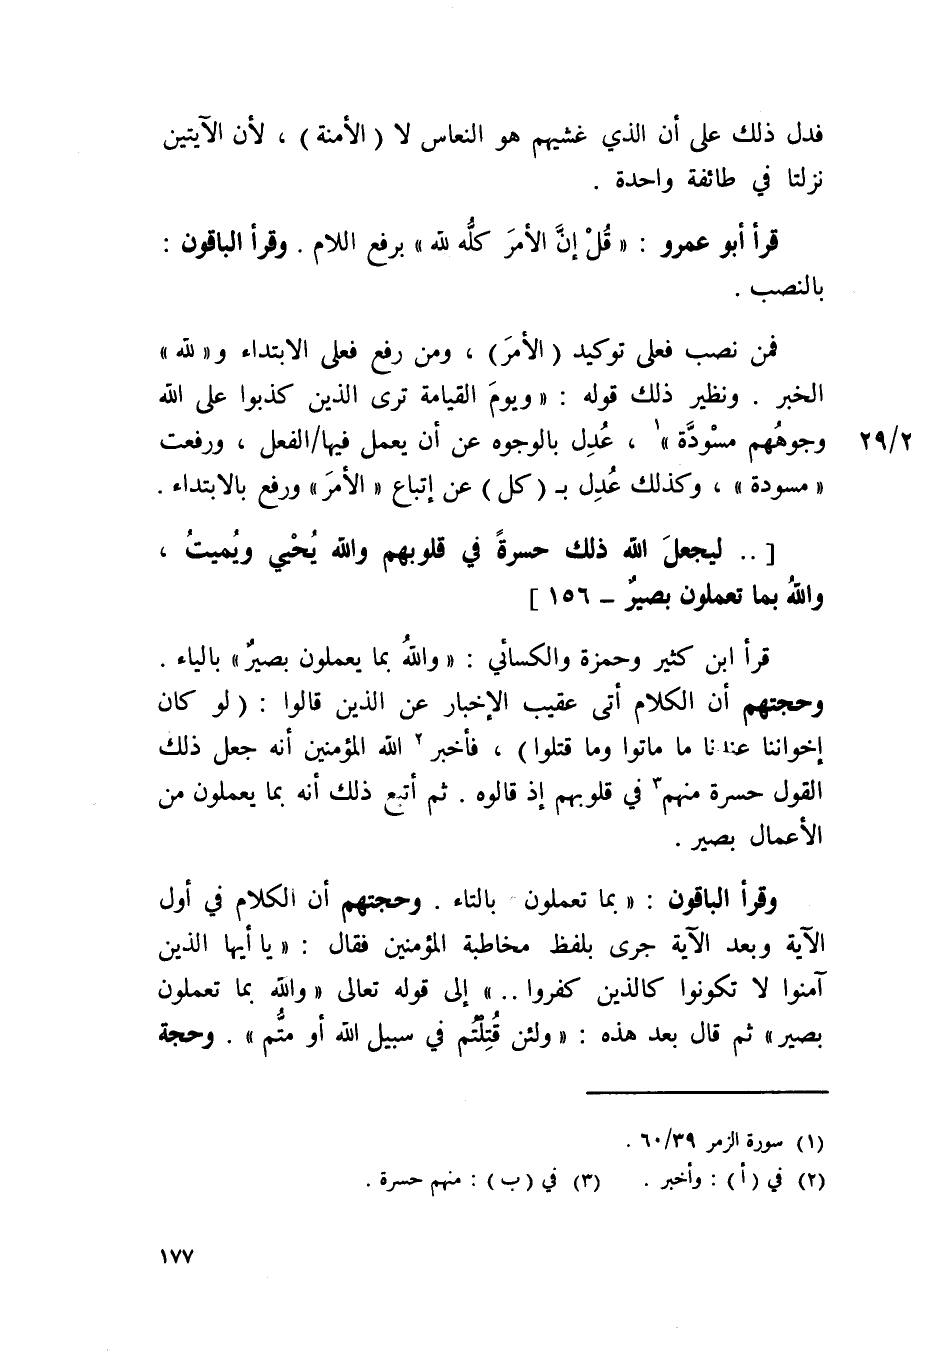 فدل ذلك على أن الذي غشيهم هو النعاس لا ( الأمنة ) ، لأن الآيتين
نزلتا في طائفة واحدة .
قرأ أبو عمرو : « قُلْ إنَّ الأمرَ كلُّه لله » برفع اللام . وقرأ الباقون :
بالنصب .
فمن نصب فعلى توكيد ( الأمرَ ) ، ومن رفع فعلى الابتداء و« لله »
الخبر . ونظير ذلك قوله : « ويومَ القيامة ترى الذين كذبوا على الله
وجوهُهم مسْودَّة »١ ، عُدِل بالوجوه عن أن يعمل فيها/الفعل ، ورفعت ٢٩/٢
« مسودة » ، وكذلك عُدِل بـ ( كل ) عن إتباع « الأمرَ » ورفع بالابتداء .
[ .. ليجعلَ الله ذلك حسرةً في قلوبهم والله يُحْيي ويُميتُ ،
واللهُ بما تعملون بصيرٌ – ١٥٦ ]
قرأ ابن كثير وحمزة والكسائي : « واللهُ بما يعملون بصيرٌ » بالياء .
وحجتهم أن الكلام أتى عقيب الإخبار عن الذين قالوا : ( لو كان
إخواننا عندنا ما ماتوا وما قتلوا ) ، فأخبر٢ الله المؤمنين أنه جعل ذلك
القول حسرة منهم٣ في قلوبهم إذ قالوه . ثم أتبع ذلك أنه بما يعملون من
الأعمال بصير .
وقرأ الباقون : « بما تعملون بالتاء . وحجتهم أن الكلام في أول
الآية وبعد الآية جرى بلفظ مخاطبة المؤمنين فقال : « يا أيها الذين
آمنوا لا تكونوا كالذين كفروا .. » إلى قوله تعالى « والله بما تعملون
بصير » ثم قال بعد هذه : « ولئن قُتِلْتُم في سبيل الله أو متُّم » . وحجة
(١) سورة الزمر ٦٠/٣٩ .
(٢) في ( أ ) : وأخبر . (٣) في ( ب ) : منهم حسرة .
١٧٧